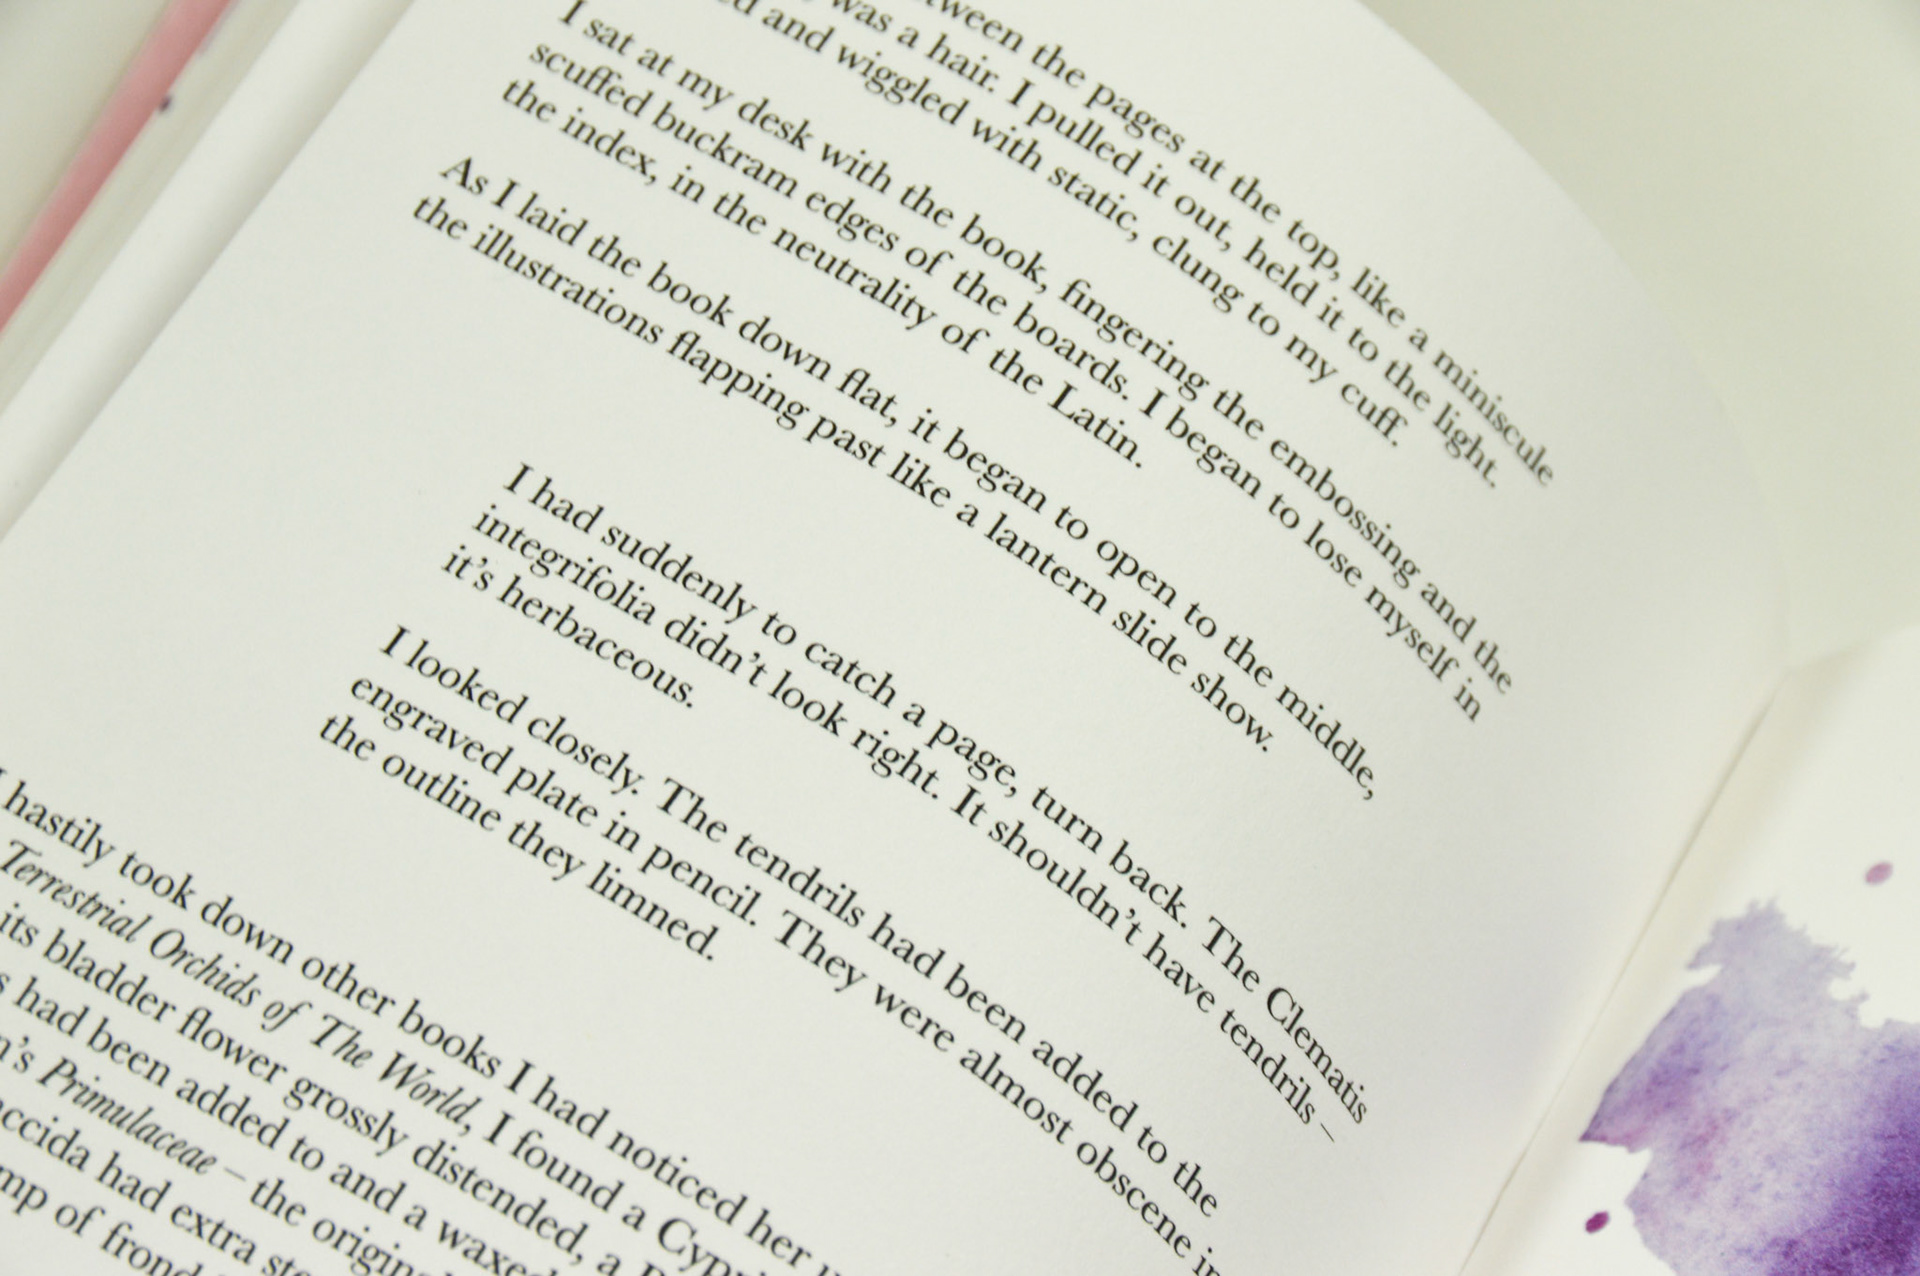 tween the pages at the top, like a miniscule
was a hair. I pulled it out, held it to the light.
ed and wiggled with static, clung to my cuff.
I sat at my desk with the book, fingering the embossing and the
scuffed buckram edges of the boards. I began to lose myself in
the index, in the neutrality of the Latin.
As I laid the book down flat, it began to open to the middle,
the illustrations flapping past like a lantern slide show.
I had suddenly to catch a page, turn back. The Clematis
integrifolia didn't look right. It shouldn't have tendrils –
it's herbaceous.
I looked closely. The tendrils had been added to the
engraved plate in pencil. They were almost obscene in
the outline they limned.
I hastily took down other books I had noticed her
Terrestrial Orchids of The World, I found a Cypri
its bladder flower grossly distended, a
s had been added to and a waxed
n's Primulaceae – the origina
ccida had extra ste
mp of frond